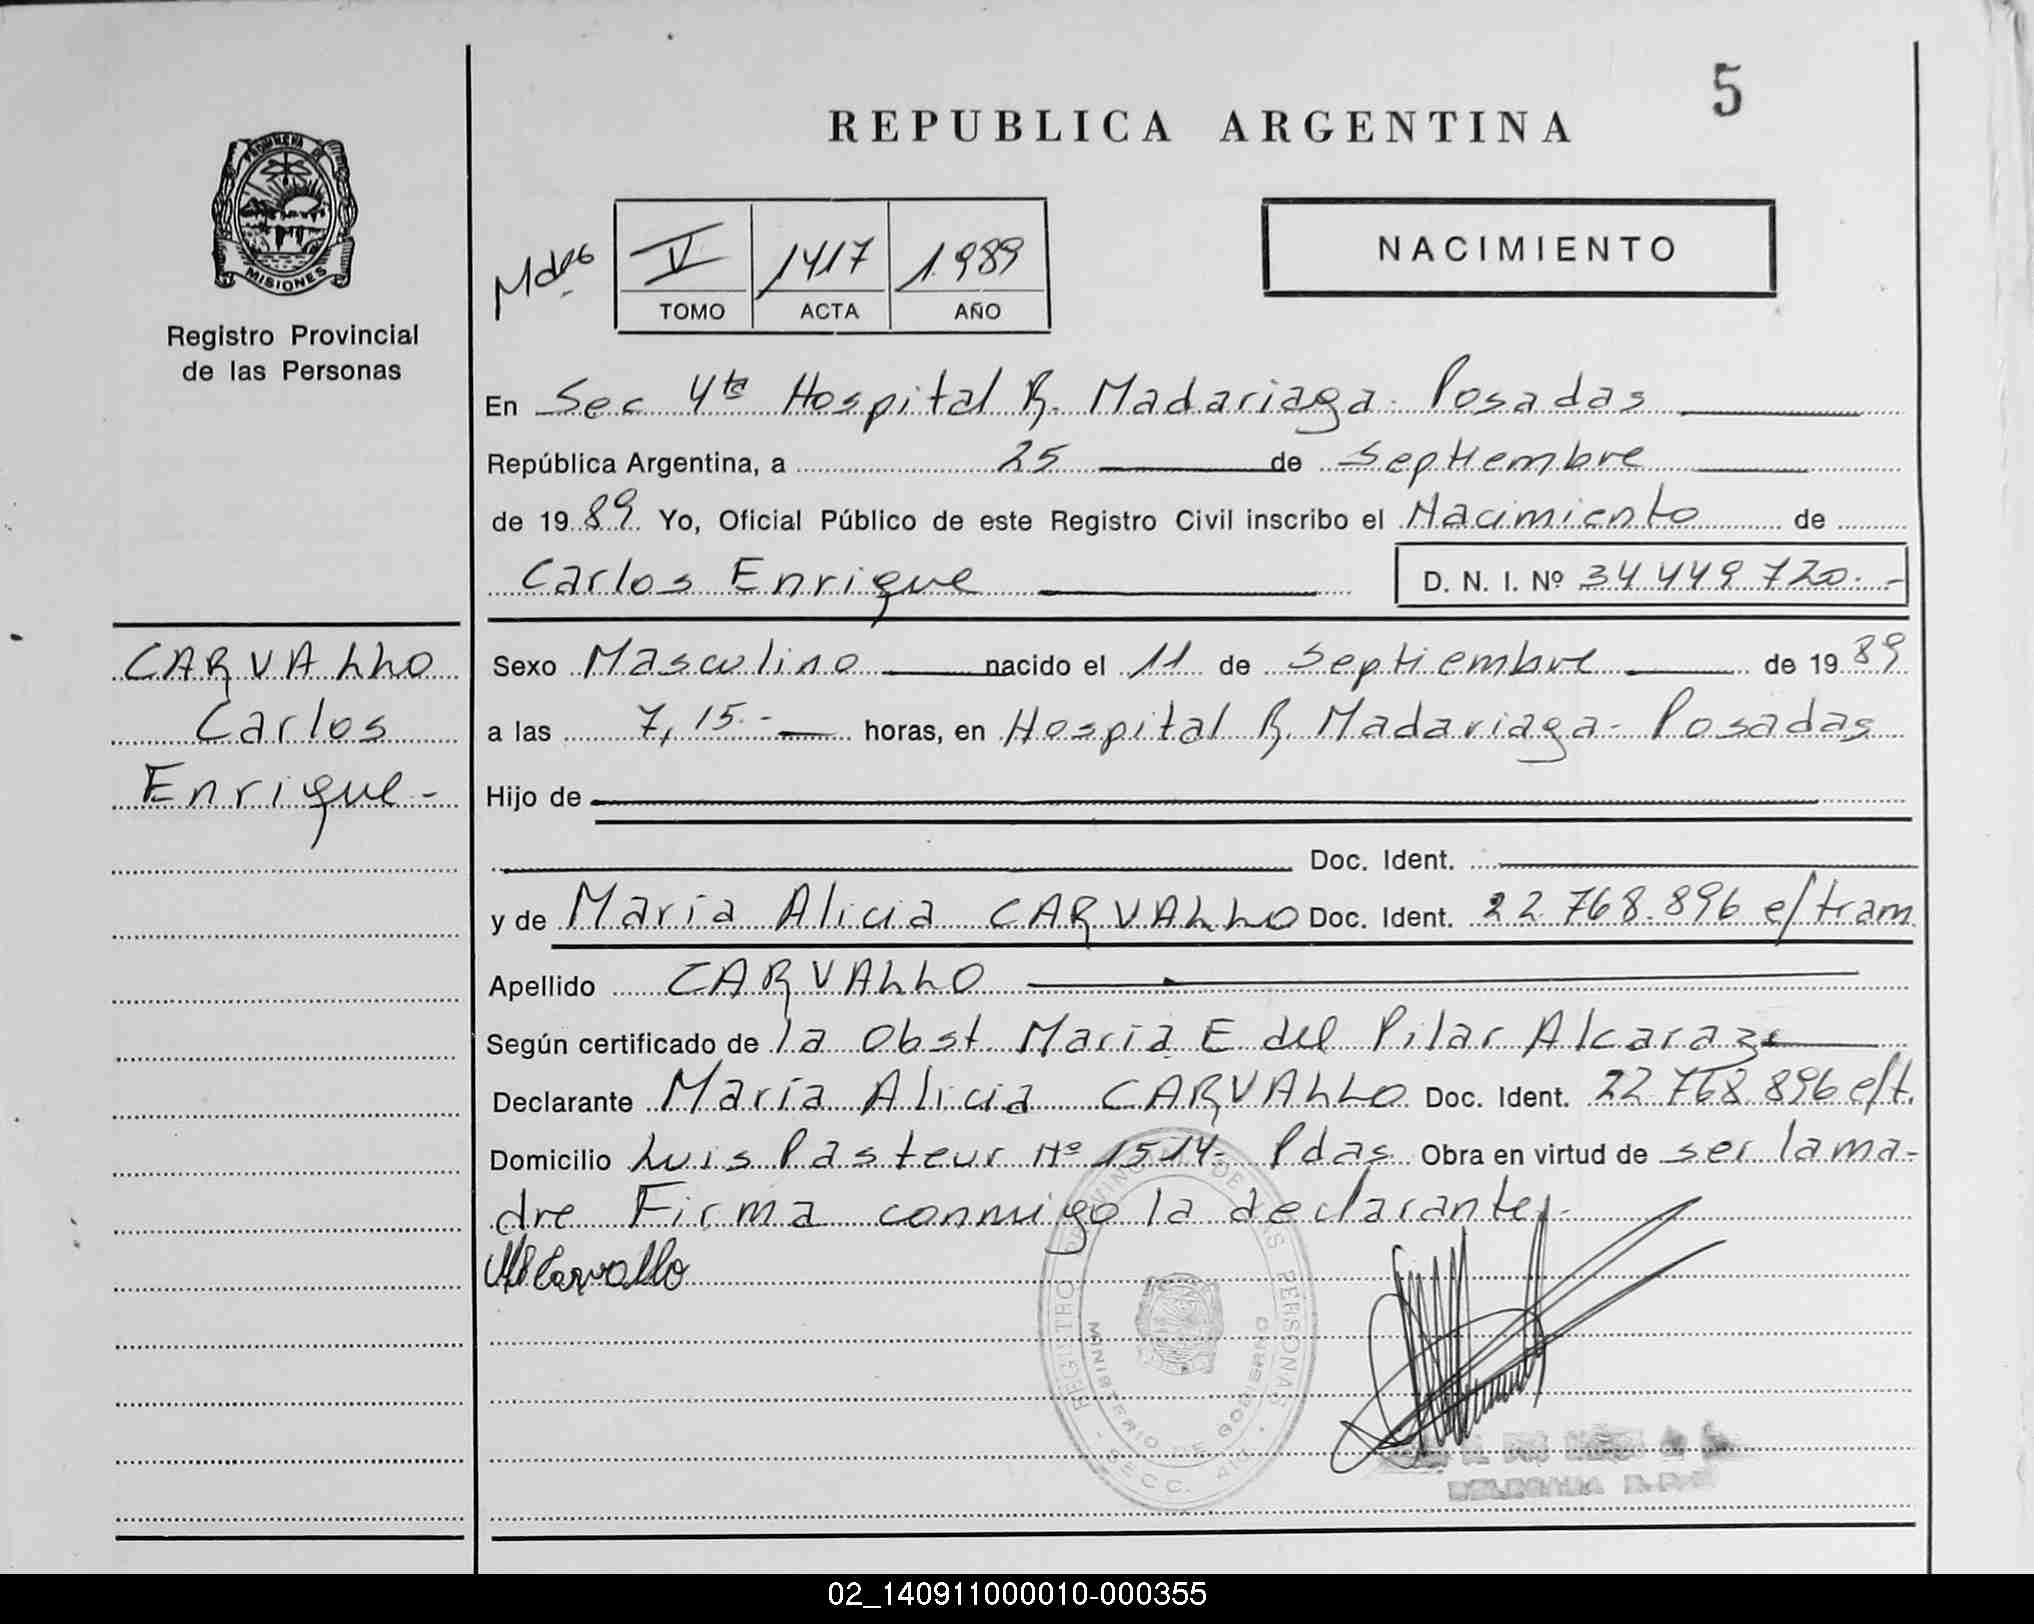 5
REPUBLICA ARGENTINA
PROVINCIA DE
MISIONES
Registro Provincial
de las Personas
NACIMIENTO
V 1417 1989
TOMO ACTA AÑO
En Sec 4ta Hospital R. Madariaga - Posadas
República Argentina, a 25 de Septiembre
de 1989 Yo, Oficial Público de este Registro Civil inscribo el Nacimiento de
Carlos Enrique D. N. I. Nº 34.449.720.-
CARVALLO
Carlos
Enrique -
Sexo Masculino nacido el 11 de Septiembre de 1989
a las 7,15.- horas, en Hospital R. Madariaga - Posadas
Hijo de
Doc. Ident.
y de María Alicia CARVALLO Doc. Ident. 22.768.896 e/tram
Apellido CARVALLO
Según certificado de la Obst. María E del Pilar Alcaraz
Declarante María Alicia CARVALLO Doc. Ident. 22.768.896 e/t.
Domicilio Luis Pasteur Nº 1514- Pdas Obra en virtud de ser la ma-
dre Firma conmigo la declarante.-
Carvallo
REGISTRO PROVINCIAL DE LAS PERSONAS
MINISTERIO DE GOBIERNO
SECC. 4ta
02_140911000010-000355